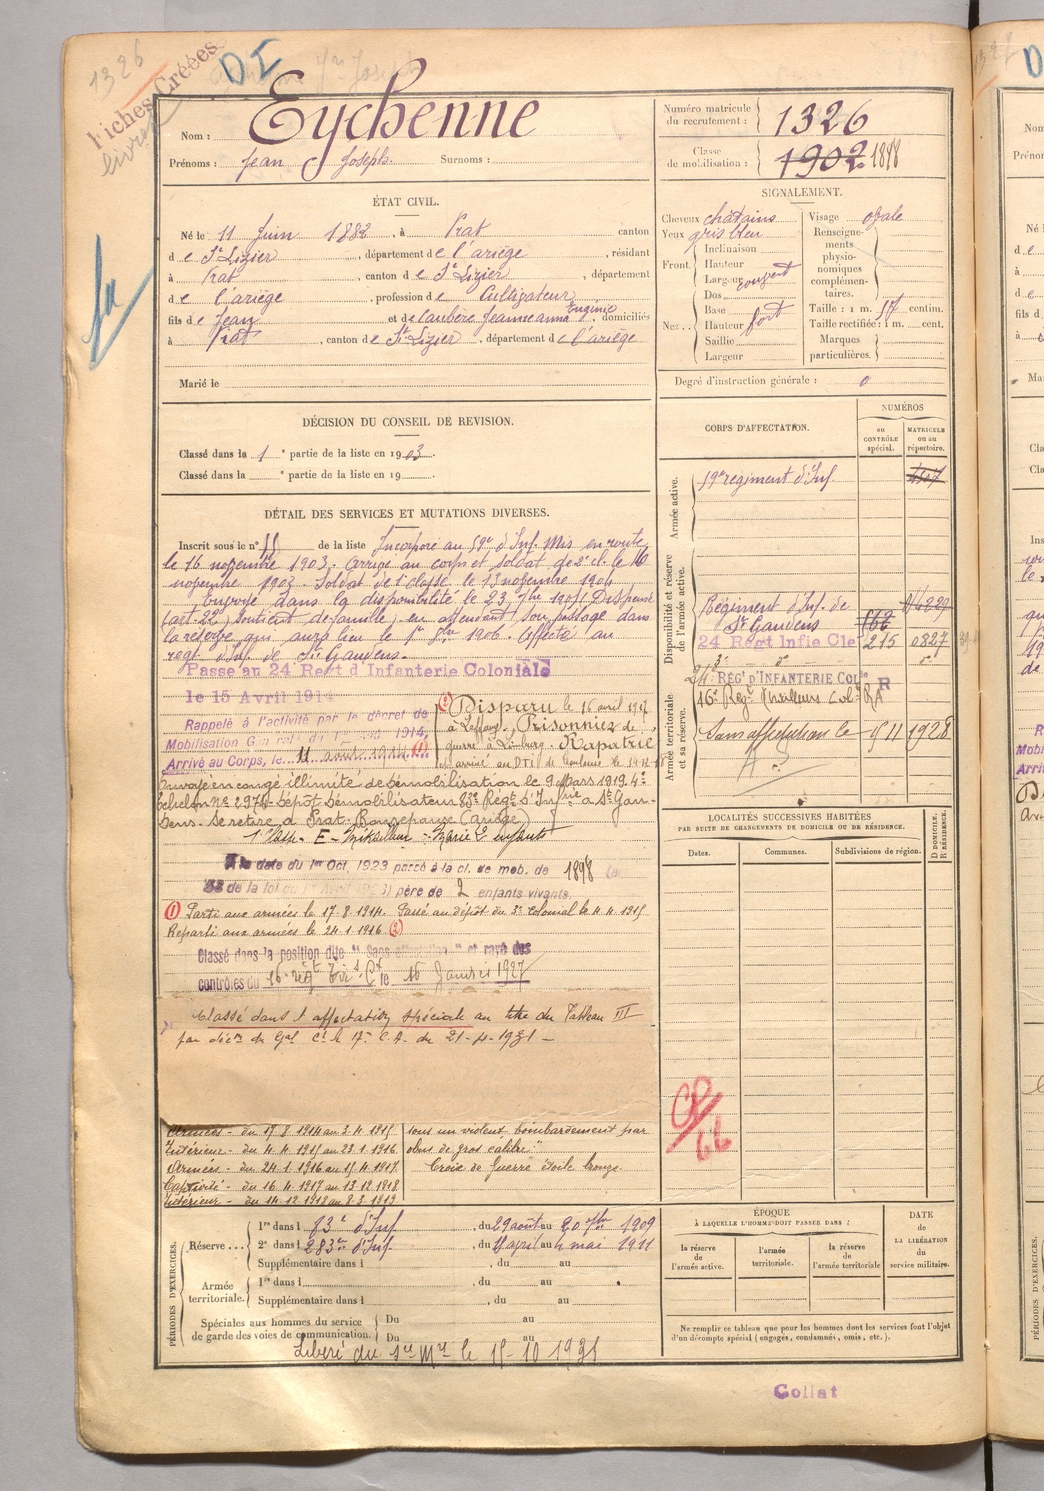 1326
Fiches Créées
livret
DI
Nom : Eychenne
Prénoms : Jean Joseph. Surnoms :
Numéro matricule du recrutement : 1326
Classe de mobilisation : 1902 1898
ÉTAT CIVIL.
Né le 11 Juin 1882, à Prat canton
de St Lizier, département de l'ariège, résidant
à Prat, canton de St Lizier, département
de l'ariège, profession de Cultivateur
fils de Jean et de Caubère Jeanne anna Eugénie, domiciliés
à Prat, canton de St Lizier, département de l'ariège
Marié le
SIGNALEMENT.
Cheveux châtains
Yeux gris bleu
Front. Inclinaison
Hauteur
Largeur couvert
Nez... Dos
Base
Hauteur fort
Saillie
Largeur
Visage ovale
Renseignements physionomiques complémentaires.
Taille : 1 m. 57 centim.
Taille rectifiée : 1 m. cent.
Marques particulières.
Degré d'instruction générale : 0
DÉCISION DU CONSEIL DE REVISION.
Classé dans la 1e partie de la liste en 1903.
Classé dans la e partie de la liste en 19
CORPS D'AFFECTATION.
NUMÉROS
au CONTRÔLE spécial.
MATRICULE ou au répertoire.
Armée active.
59e régiment d'Inf.
Disponibilité et réserve de l'armée active.
Régiment d'Inf. de
St Gaudens
24 Regt Infie Cle 215 0827
24e RÉGt D'INFANTERIE COLle R
Armée territoriale et sa réserve.
16e Régt Tirailleurs Col. RA
Sans affectation le 5 11 1928
DÉTAIL DES SERVICES ET MUTATIONS DIVERSES.
Inscrit sous le n° 55 de la liste Incorporé au 59e d'Inf. Mis en route
le 16 novembre 1903. arrivé au corps et soldat de 2e cl. le 16
novembre 1903. Soldat de 1e classe le 13 novembre 1904
Envoyé dans la disponibilité le 23 7bre 1905 Dispensé
(art. 22) soutient de famille, en attendant son passage dans
la réserve qui aura lieu le 1er 9bre 1906. affecté au
regt d'Inf. de St Gaudens.
Passé au 24 Regt d'Infanterie Coloniale
le 15 Avril 1914
Rappelé à l'activité par le décret de
Mobilisation Générale du 1er août 1914,
Arrivé au Corps, le 11 août 1914 (1)
(2) Disparu le 16 avril 1917
à Laffaux. Prisonnier de
guerre à Limburg. Rapatrié
arrivé au DTI de Toulouse le 14-12-18
Envoyé en congé illimité de démobilisation le 9 Mars 1919. 4e
échelon No 2976 Dépôt démobilisateur 83e Régt d'Infrie à St Gau-
dens. Se retire à Prat-Bonrepaux (Ariège)
A la date du 1er Oct. 1923 passé à la cl. de mob. de 1898 (art.
58 de la loi du 1er Avril 1923) père de 2 enfants vivants.
(1) Parti aux armées le 17.8.1914. Passé au dépôt du 3e colonial le 4 4 1915
Reparti aux armées le 24.1.1916 (2)
Classé dans la position dite "Sans affectation" et rayé des
contrôles du 16e régt Tirs Cx le 16 Janvier 1927
Classé dans l'affectation spéciale au titre du Tableau III
par décon du Gal Ct le 17e C.A. du 21-4-1931 -
Armées - du 17 8 1914 au 3.4.1915
Intérieur - du 4.4.1915 au 23.1.1916
Armées - du 24.1.1916 au 15.4.1917.
Captivité - du 16.4.1917 au 13.12.1918.
Intérieur - du 14.12.1918 au 8.3.1919.
sous un violent bombardement par
obus de gros calibre."
Croix de Guerre étoile bronze.
LOCALITÉS SUCCESSIVES HABITÉES
PAR SUITE DE CHANGEMENTS DE DOMICILE OU DE RÉSIDENCE.
Dates.
Communes.
Subdivisions de région.
D DOMICILE. R RÉSIDENCE.
66
PÉRIODES D'EXERCICES.
Réserve... 1re dans l 83e d'Inf., du 29 août au 20 7bre 1909
2e dans l 283e d'Inf., du 18 avril au 4 mai 1911
Supplémentaire dans l, du au
Armée territoriale. 1re dans l, du au
Supplémentaire dans l, du au
Spéciales aux hommes du service de garde des voies de communication. Du au
Du au
Libéré du sce Mre le 15-10-1931
ÉPOQUE
À LAQUELLE L'HOMME DOIT PASSER DANS :
la réserve de l'armée active.
l'armée territoriale.
la réserve de l'armée territoriale
DATE de LA LIBÉRATION du service militaire.
Ne remplir ce tableau que pour les hommes dont les services font l'objet
d'un décompte spécial (engagés, condamnés, omis, etc.).
Collat